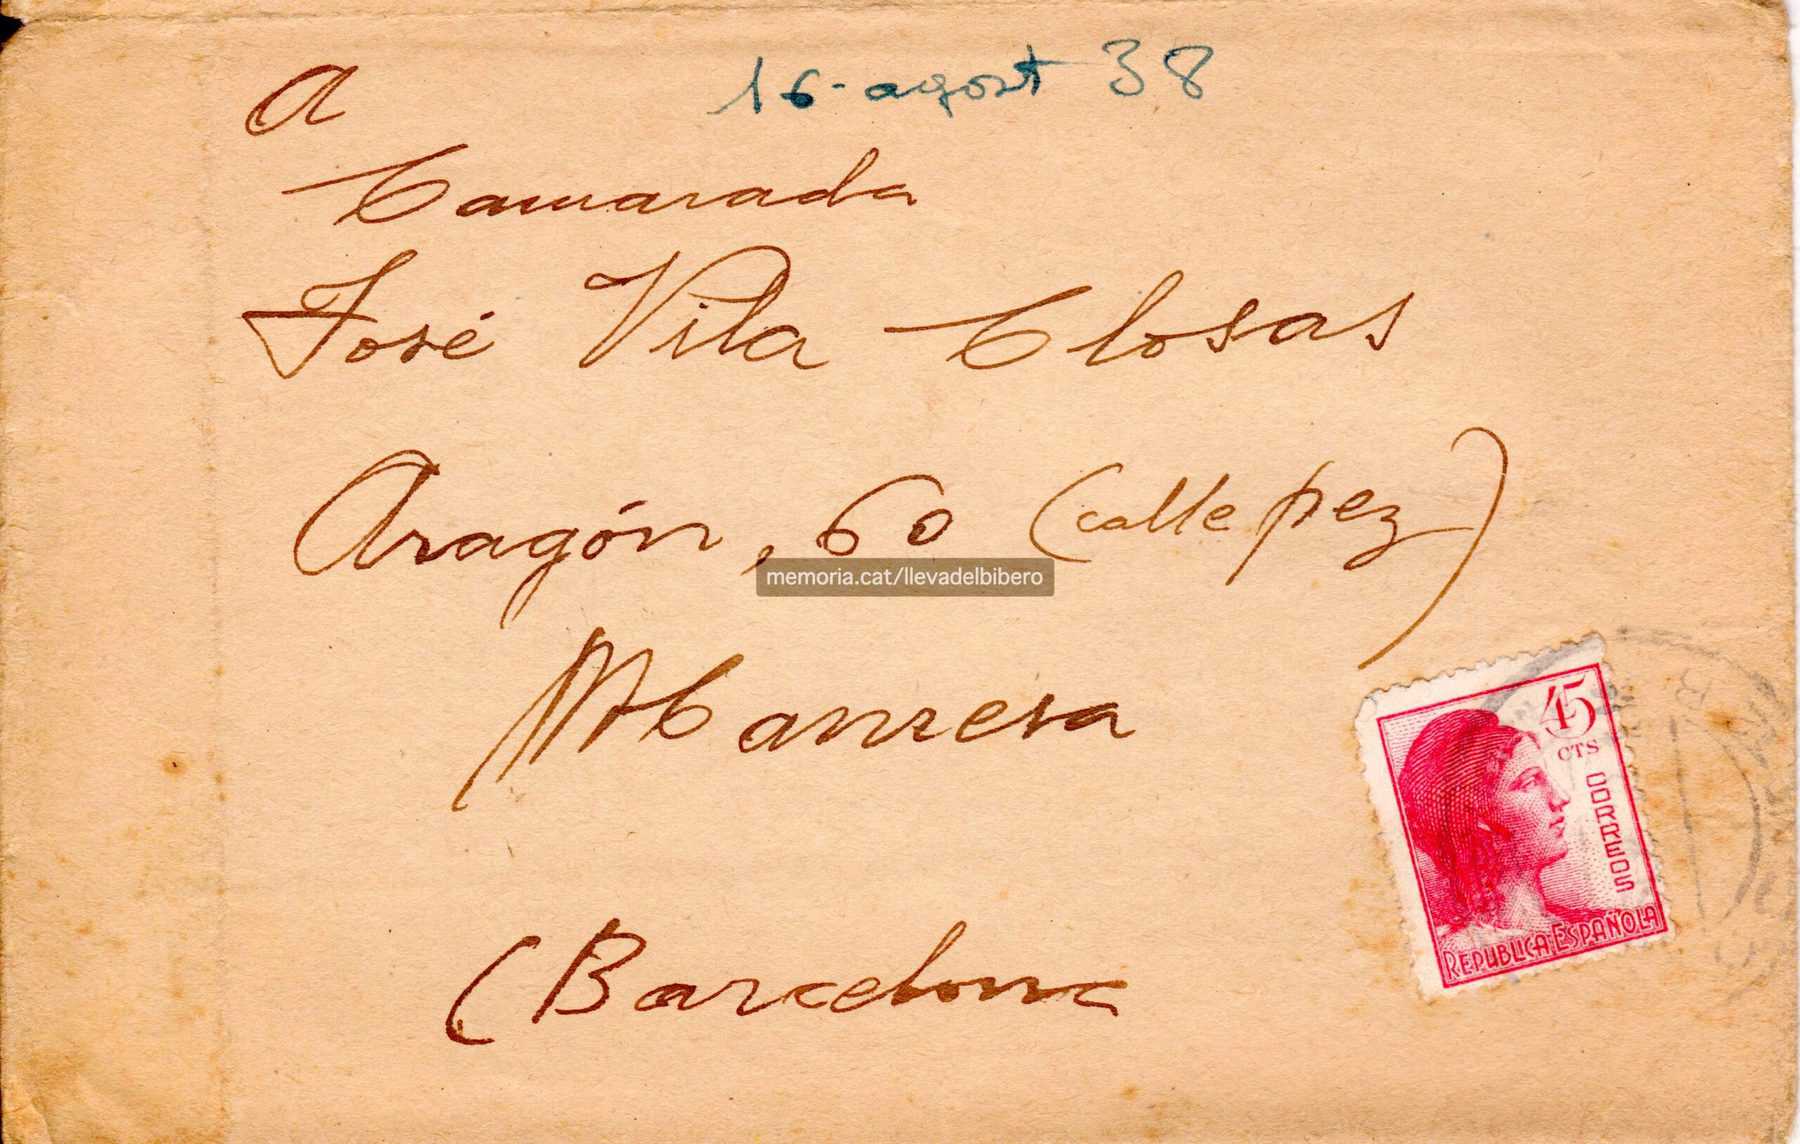 16-agost 38
A
Camarada
José Vila Closas
Aragón, 60 (calle pez)
memoria.cat/llevadelbibero
Manresa
45
CTS
CORREOS
REPUBLICA ESPAÑOLA
(Barcelona